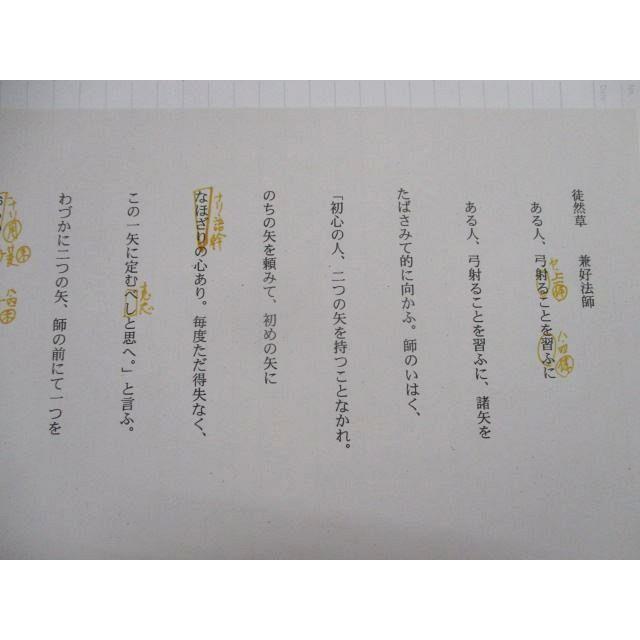 徒然草　兼好法師
ある人、弓射ることを習ふに
ある人、弓射ることを習ふに、諸矢を
たばさみて的に向かふ。師のいはく、
「初心の人、二つの矢を持つことなかれ。
のちの矢を頼みて、初めの矢に
ナリ活幹
なほざりの心あり。毎度ただ得失なく、
この一矢に定むべしと思へ。」と言ふ。
わづかに二つの矢、師の前にて一つを